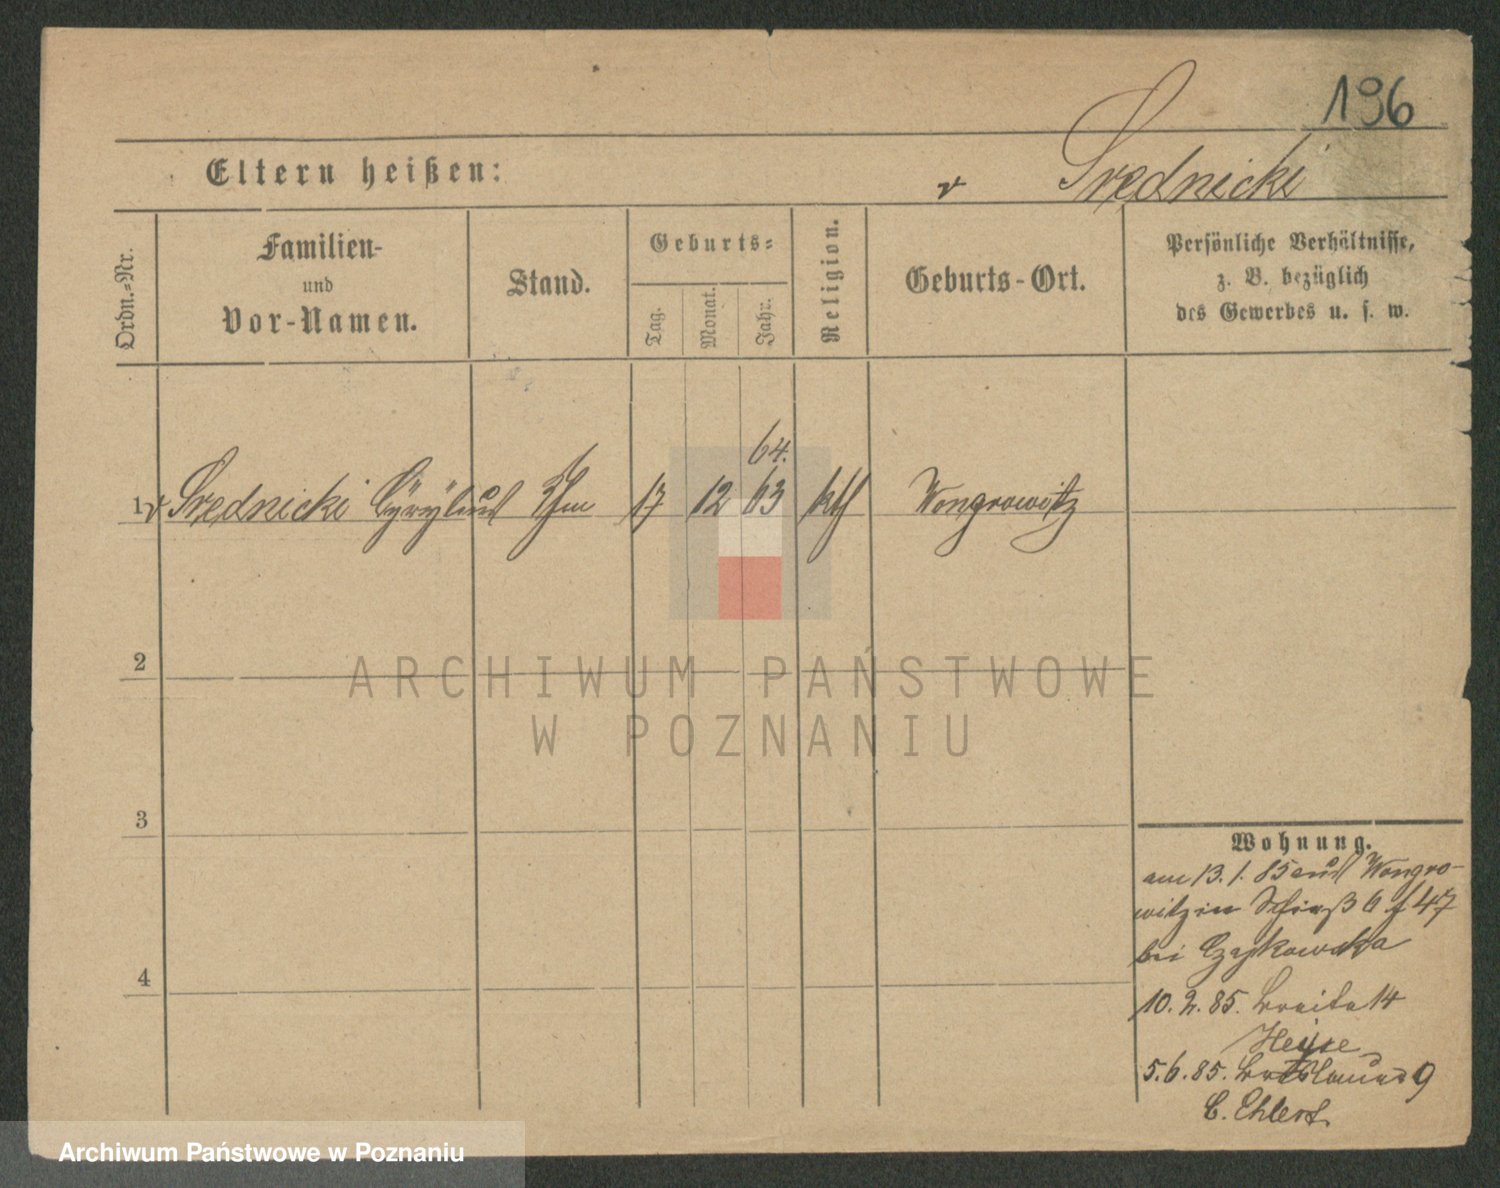 196
Eltern heißen: v Srednicki
Ordn.-Nr.
Familien-
und
Vor-Namen.
Stand.
Geburts-
Tag.
Monat.
Jahr.
Religion.
Geburts-Ort.
Persönliche Verhältnisse,
z. B. bezüglich
des Gewerbes u. s. w.
64.
1 v Srednicki 17 12 63 kth Wongrowitz
2
3
4
Wohnung.
am 13. 1. 85 aus Wongro-
witz in Schieß 6 f 47
bei Czajkowska
10. 2. 85. Breite 14
Heyse
5. 6. 85. 9
C. Ehlert
ARCHIWUM PAŃSTWOWE
W POZNANIU
Archiwum Państwowe w Poznaniu